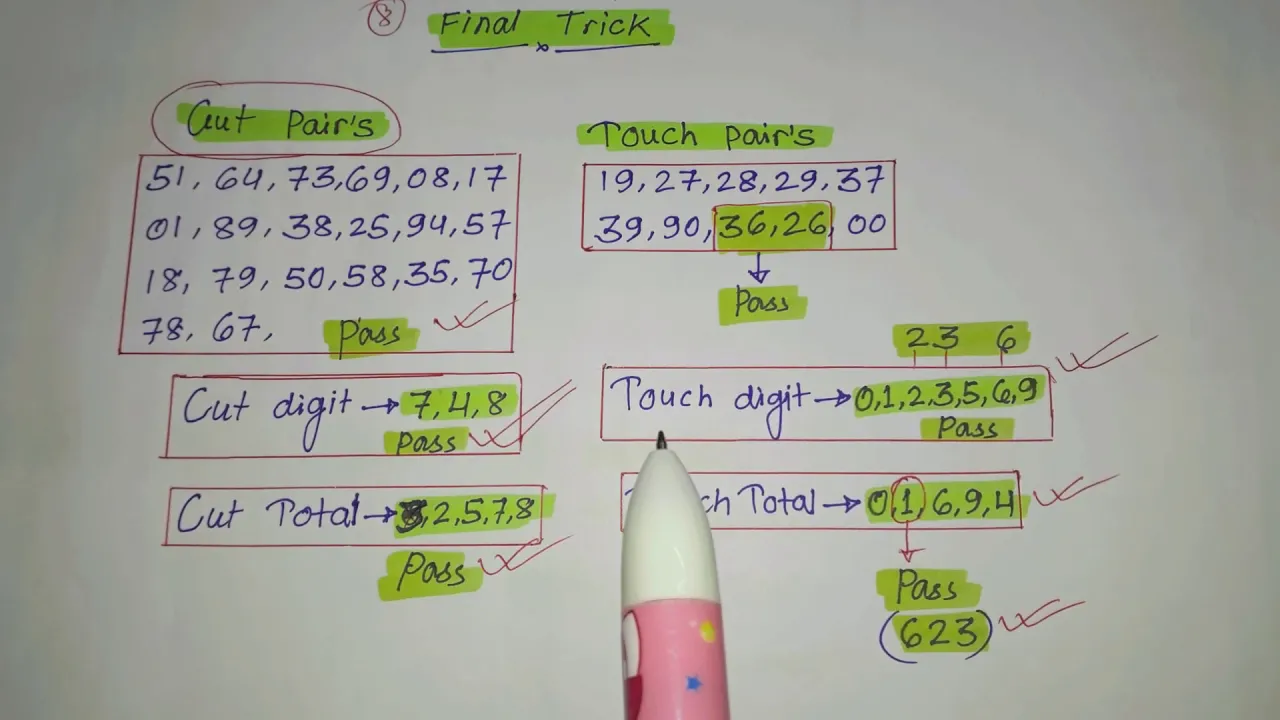 8
Final Trick
Cut Pair's
51, 64, 73, 69, 08, 17
01, 89, 38, 25, 94, 57
18, 79, 50, 58, 35, 70
78, 67, Pass
Touch pair's
19, 27, 28, 29, 37
39, 90, 36, 26, 00
Pass
Cut digit → 7, 4, 8
Pass
2 3 6
Touch digit → 0, 1, 2, 3, 5, 6, 9
Pass
Cut Total → 2, 5, 7, 8
Pass
Total → 0, 1, 6, 9, 4
Pass
(623)